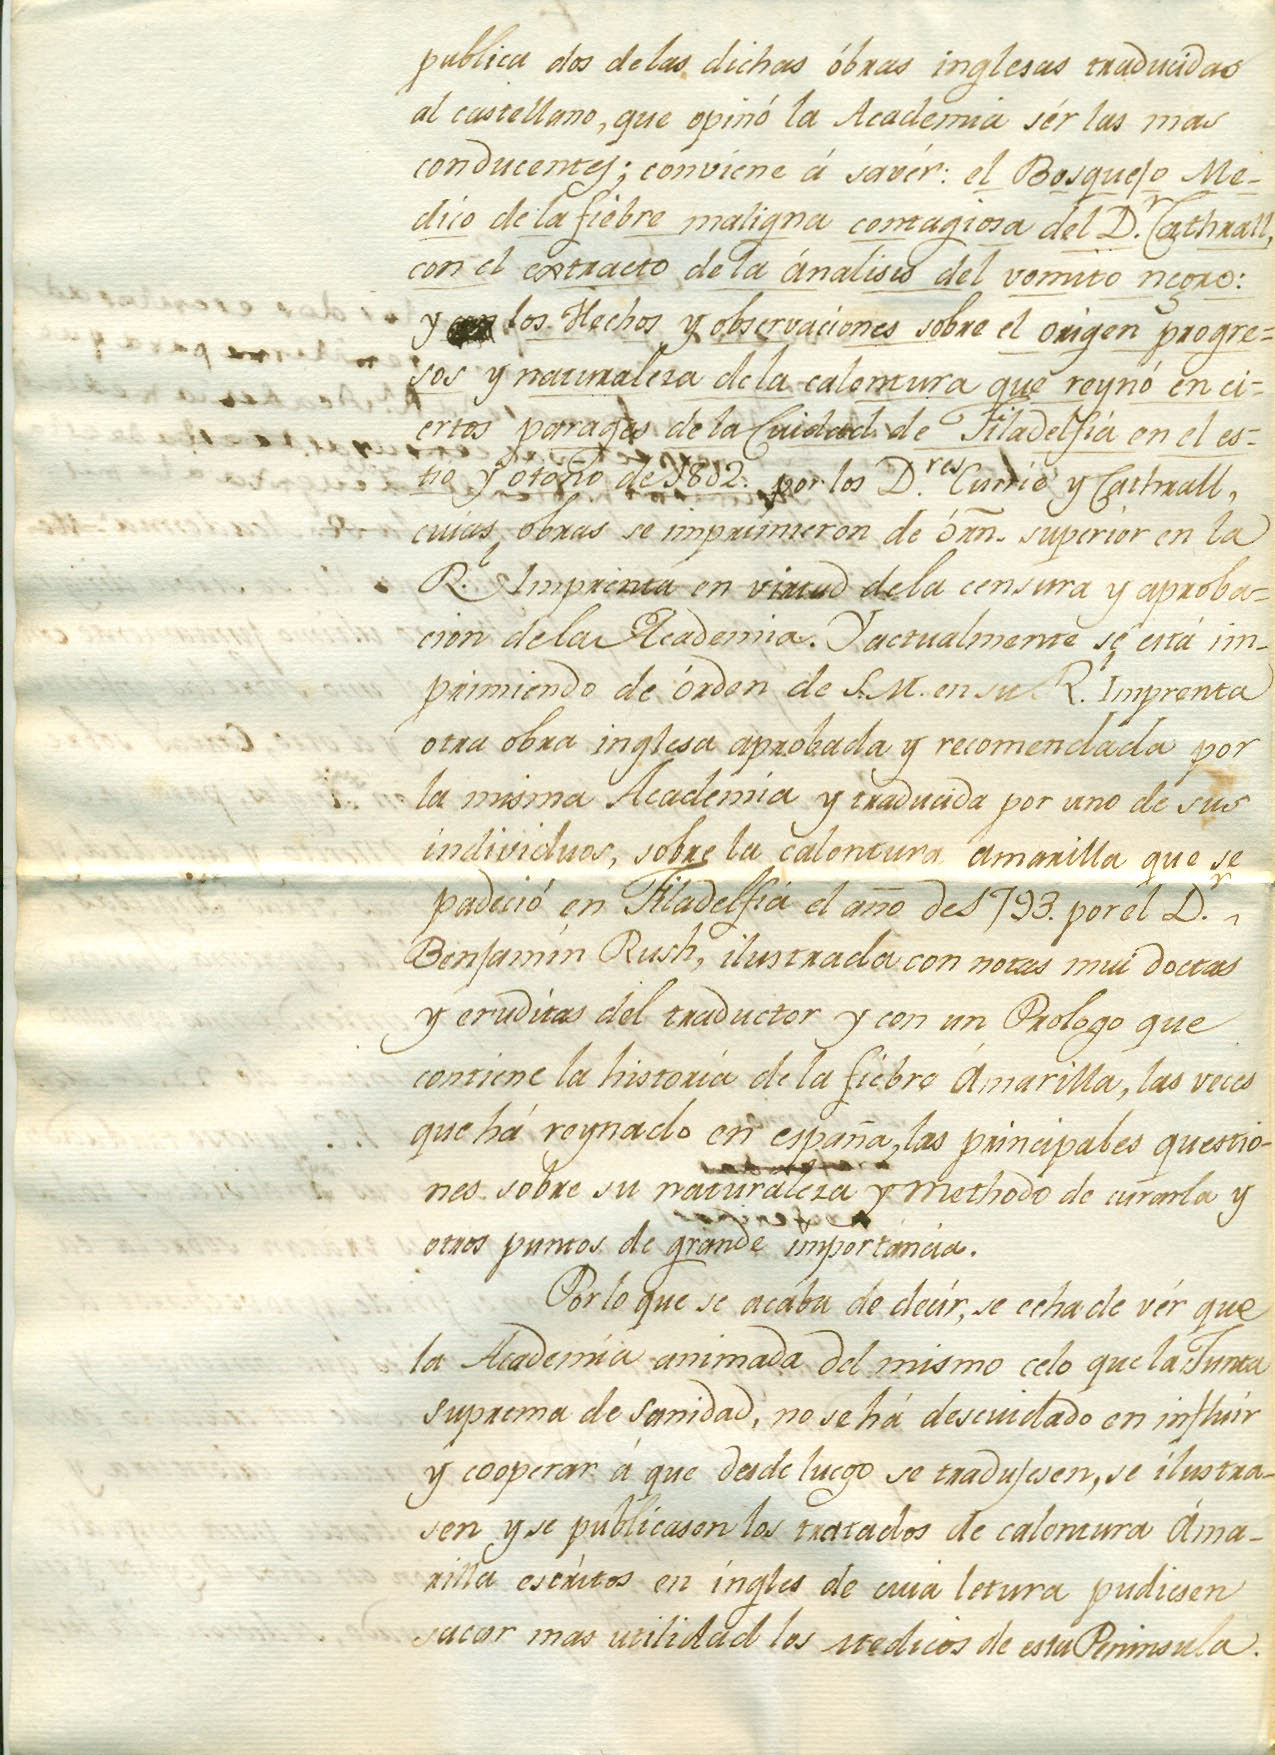 publica dos de las dichas óbras inglesas traducidas
al castellano, que opinó la Academia sér las mas
conducentes; conviene á savér: el Bosquejo Me-
dico de la fiebre maligna contagiosa del D.r Cathrall,
con el extracto de la ánalisis del vomito negro:
y los Hechos y observaciones sobre el origen progre=
sos y naturaleza de la calentura que reynó en ci-
ertos parages de la Cuidad de Filadelfiá en el es-
tio y otoño de 1802. por los D.res Currie y Cathrall,
cuias obras se imprimieron de órn. superior en la
R.l Imprenta en virtud de la censura y aproba-
cion de la Academia. Y actualmente se está im-
primiendo de órden de S.M. en su R.l Imprenta
otra obra inglesa aprobada y recomendada por
la misma Academia y traducida por uno de sus
individuos, sobre la calentura amarilla que se
padeció en Filadelfiá el año de 1793. por el D.r
Benjamín Rush, ilustrada con notas mui doctas
y eruditas del traductor y con un Prologo que
contiene la historia de la fiebre Ámarilla, las veces
que há reynado en españa, las principales questio-
nes sobre su naturaleza y Methodo de curarla y
otros puntos de grande importáncia.
Por lo que se acába de decir, se echa de vér que
la Academia animada del mismo celo que la Junta
suprema de sanidad, no se há descuidado en influir
y cooperar á que desde luego se tradujesen, se ilustra-
sen y se publicasen los tratados de calentura Áma-
rilla escritos en ingles de cuia letura pudiesen
sacar mas utilidad los Medicos de esta Peninsula.